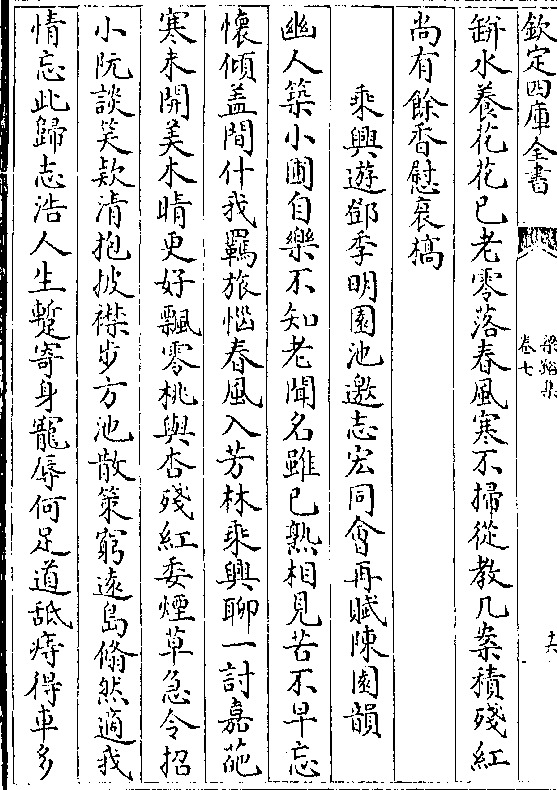 欽定四庫全書
梁谿集
卷七
十六
缾水養花花已老零落春風寒不掃從教几案積殘紅
尚有餘香慰衰槁
乘興遊鄧季明園池邀志宏同會再賦陳園韻
幽人築小圃自樂不知老聞名雖已熟相見苦不早忘
懷傾盖間什我羈旅惱春風入芳林乘興聊一討嘉葩
寒未開美木晴更好飄零桃與杏殘紅委煙草急令招
小阮談笑欵清抱披襟步方池散策窮遠島翛然適我
情忘此歸志浩人生蹔寄身寵辱何足道舐痔得車多